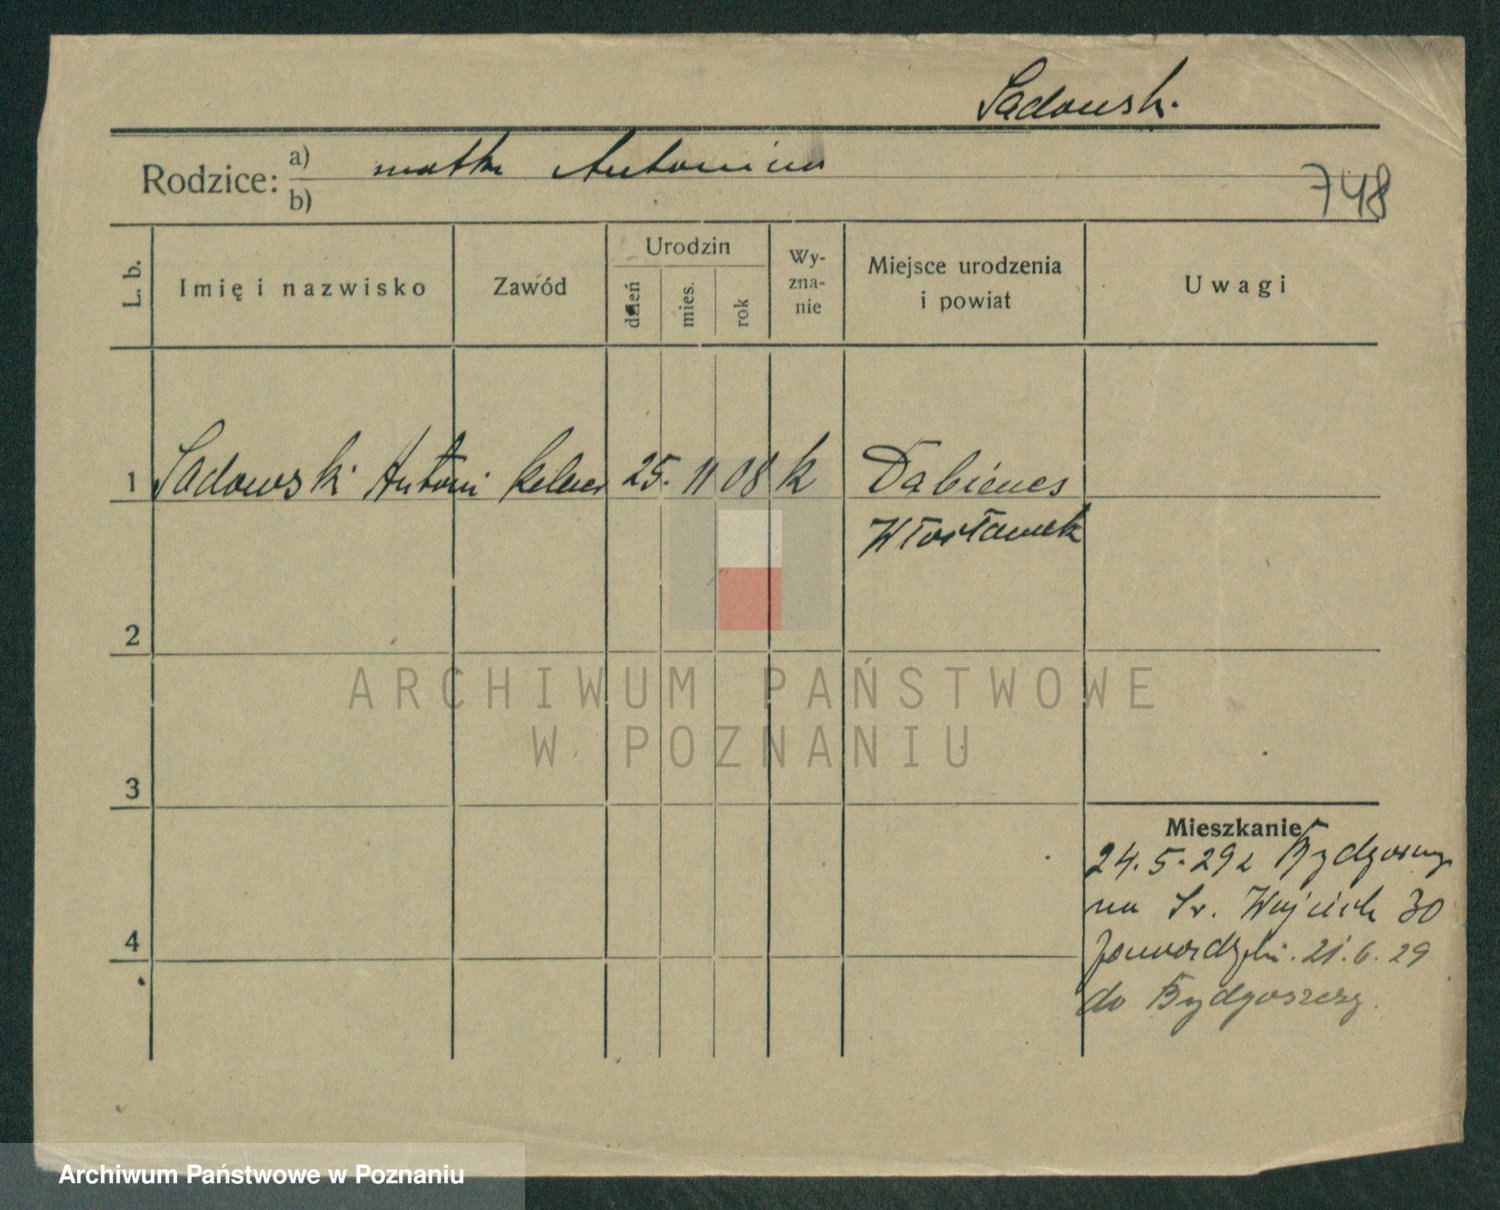 Sadowsk.
Rodzice: a) matka Antonina
b)
748
L. b.
Imię i nazwisko
Zawód
Urodzin
dzień
mies.
rok
Wy-
zna-
nie
Miejsce urodzenia
i powiat
Uwagi
1 Sadowski Antoni kelner 25. 11 08 k
Włocławek
2
3
4
Mieszkanie
24.5.29 z Bydgoszczy
na Św. Wojciech 30
21.6.29
do Bydgoszczy.
ARCHIWUM PAŃSTWOWE
W POZNANIU
Archiwum Państwowe w Poznaniu